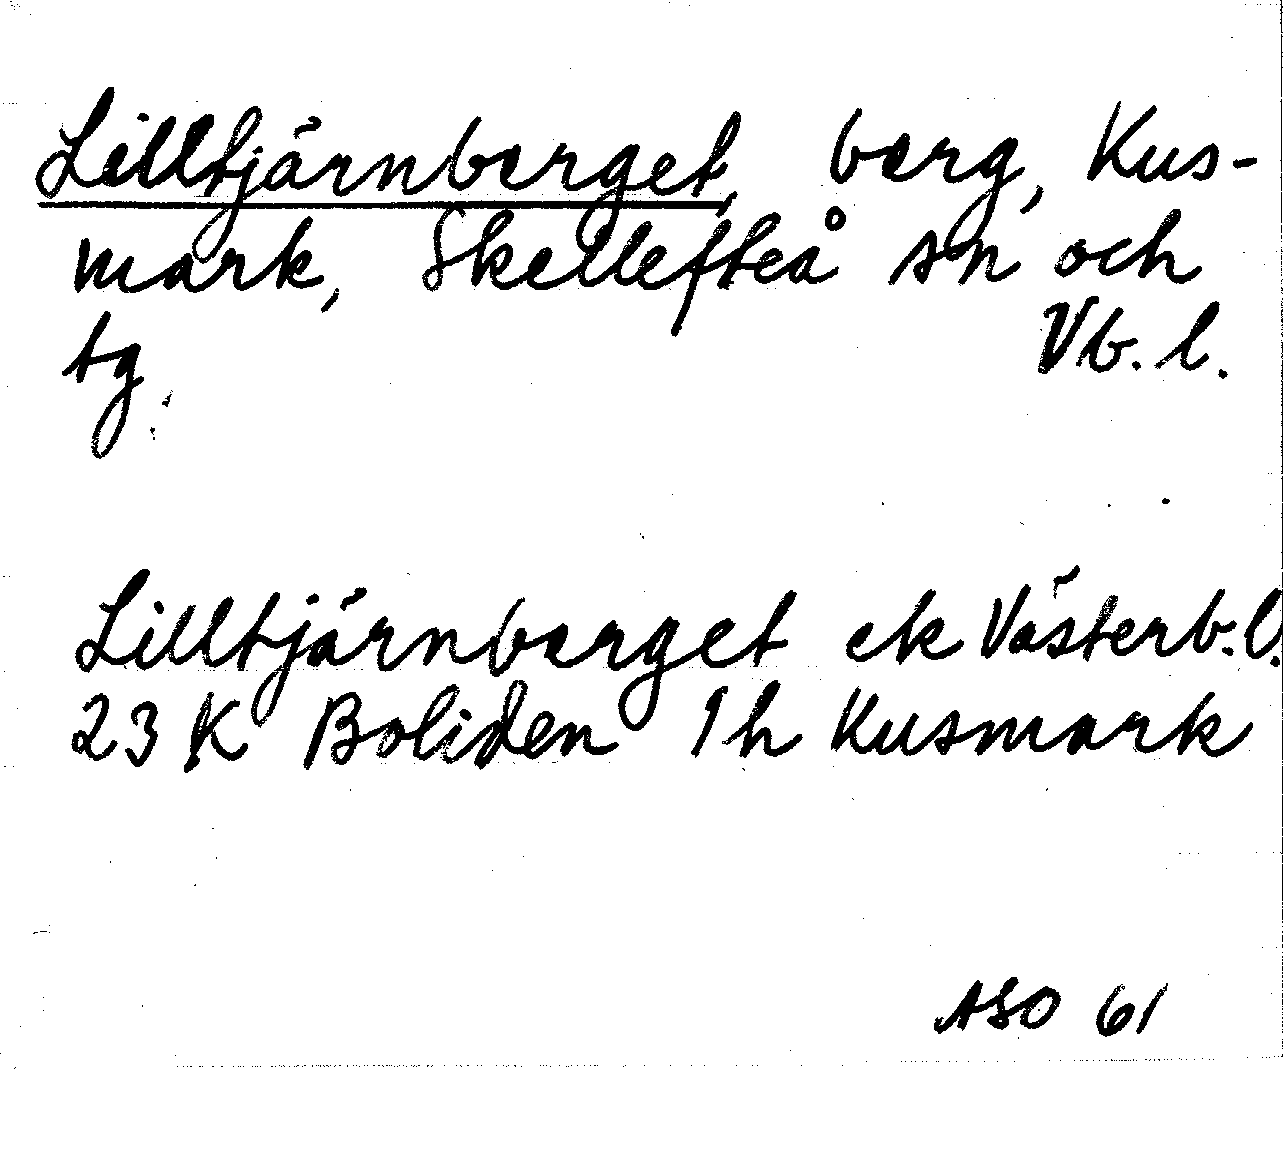 Lilltjärnberget, berg, Kus-
mark, Skellefteå sn och
tg. Vb. l.
Lilltjärnberget ek Västerb. l.
23 K Boliden 1h Kusmark
ASO 61